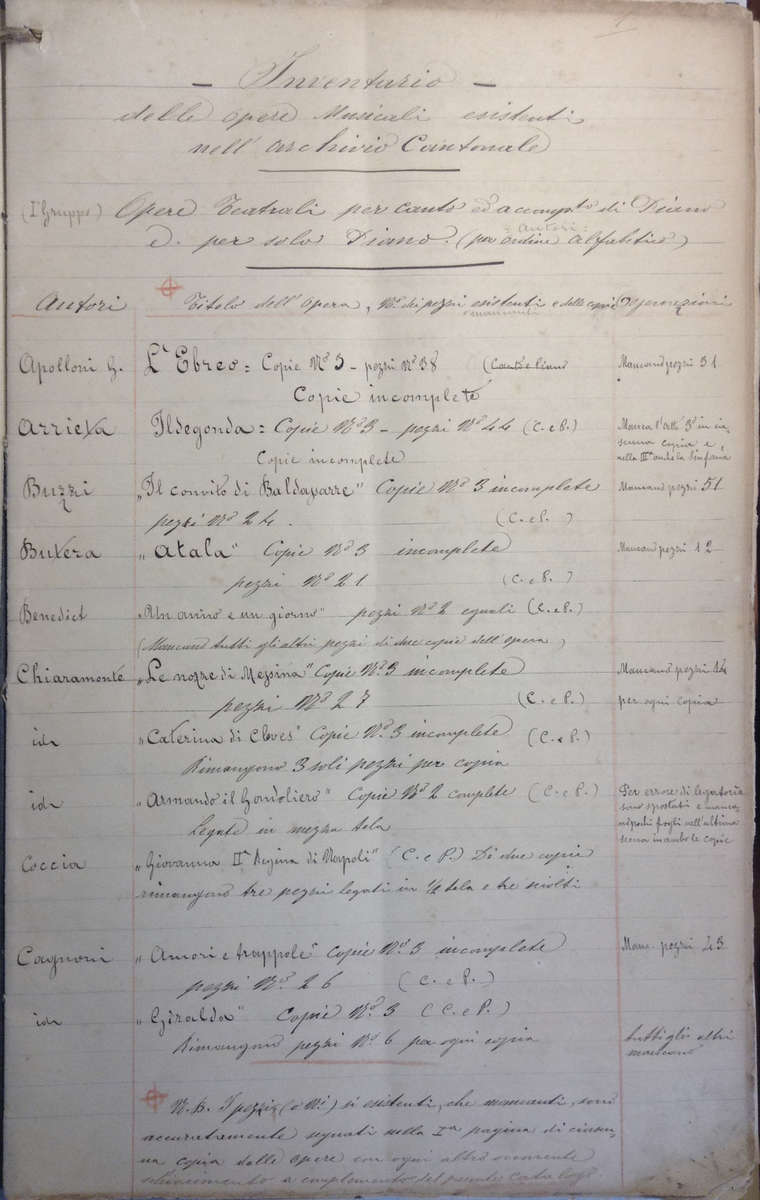 1
– Inventario –
delle opere Musicali esistenti
nell'archivio Cantonale
(I° Gruppo) Opere Teatrali per canto ed accompto di Piano
e per solo Piano. (per ordine alfabetico)
d'autori:
Autori Titolo dell'Opera, No. dei pezzi esistenti e delle copie Osservazioni
mancanti
Apolloni G. L'Ebreo = Copie No 3 – pezzi No 38 (Canto e Piano Mancano pezzi 31.
Copie incomplete
Arrieta Ildegonda = Copie No 3 – pezzi No 44 (C. e P.) Manca l'Atto 3° in cia-
scuna copia e,
Copie incomplete nella IIIa anche la Sinfonia
Buzzi „Il convito di Baldassarre" Copie No 3 incomplete Mancano pezzi 51
pezzi No 24. (C. e P.)
Butera „Atala" Copie No 3 incomplete Mancano pezzi 12
pezzi No 21 (C. e P.)
Benedict „Un anno e un giorno" pezzi No 2 eguali (C. e P.)
(Mancano tutti gli altri pezzi di due copie dell'opera)
Chiaramonte „Le nozze di Messina" Copie No 3 incomplete Mancano pezzi 14
pezzi No 27 (C. e P.) per ogni copia
id „Caterina di Cleves" Copie No 3 incomplete (C. e P.)
Rimangono 3 soli pezzi per copia
id „Armando il Gondoliero" Copie No 2 complete (C. e P.) Per errore di legatoria
sono spostati e manca-
Legate in mezza tela no pochi fogli nell'ultima
scena in ambo le copie
Coccia „Giovanna IIa Regina di Napoli" (C. e P.) Di due copie
rimangono tre pezzi legati in ½ tela e tre sciolti
Cagnoni „Amori e trappole" Copie No 3 incomplete Manc. pezzi 43
pezzi No. 26 (C. e P.)
id „Giralda" Copie No 3 (C. e P.)
Rimangono pezzi No. 6 per ogni copia tutti gli altri
mancano
N.B. I pezzi (o Ni) sì esistenti, che mancanti, sono
accuratamente segnati nella Ia pagina di ciascu-
na copia delle opere con ogni altro occorrente
schiarimento a complemento del presente catalogo.